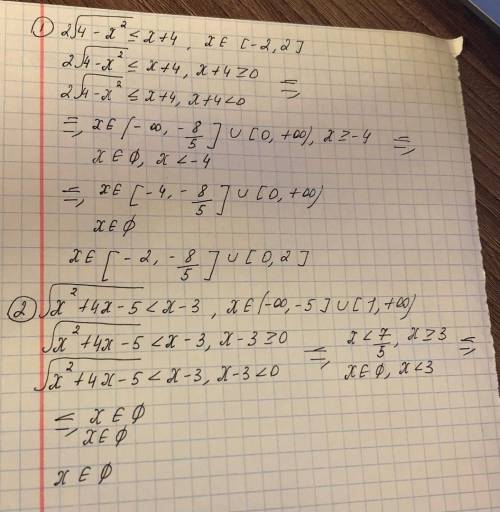 ① 2√(4-x²) ≤ x+4, x∈ [-2,2]
2√(4-x²) ≤ x+4, x+4≥0
2√(4-x²) ≤ x+4, x+4<0 =,
=, x∈[-∞, -8/5] ∪ [0, +∞), x≥-4 =,
x∈∅, x<-4
=, x∈[-4, -8/5] ∪ [0, +∞)
x∈∅
x∈[-2, -8/5] ∪ [0, 2]
② √(x²+4x-5) < x-3, x∈(-∞, -5] ∪ [1, +∞)
√(x²+4x-5) < x-3, x-3≥0
√(x²+4x-5) < x-3, x-3<0 =, x<7/5, x≥3 =,
x∈∅, x<3
=, x∈∅
x∈∅
x∈∅